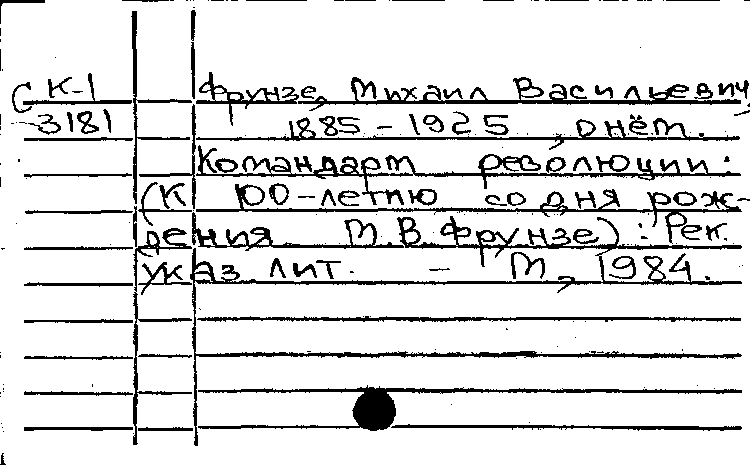 С К-1 Фрунзе, Михаил Васильевич,
3181 1885-1925, о нём.
Командарм революции:
(К 100-летию со дня рож-
дения М.В.Фрунзе): Рек.
указ лит. - М, 1984.